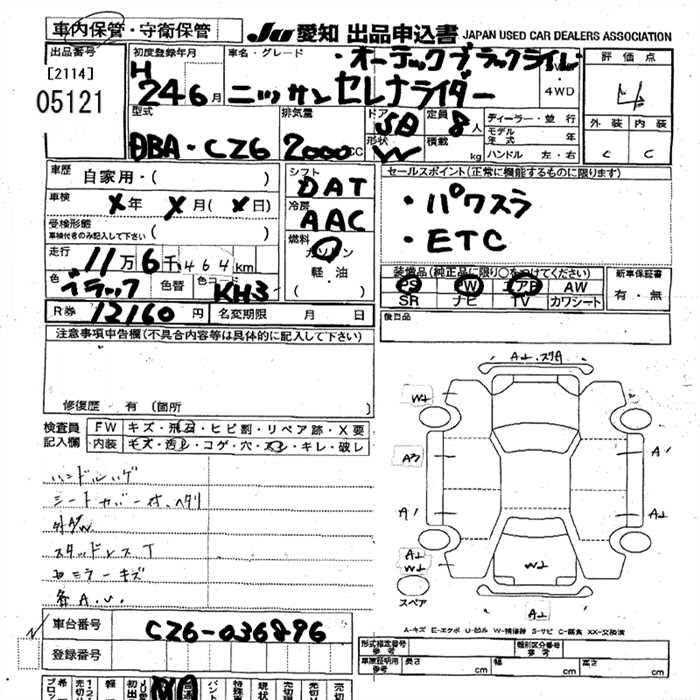 車内保管・守衛保管
JU 愛知 出品申込書 JAPAN USED CAR DEALERS ASSOCIATION
出品番号
[2114]
05121
初度登録年月
H
24 6月
車名・グレード
・オーテックブラックライダー
ニッサン セレナライダー
4WD
評価点
4
外装 内装
C C
型式
DBA・CZ6
排気量
2000 CC
ドア
5D
形状
W
定員
8人
積載
kg
ディーラー・並行
モデル年式 年
ハンドル 左・右
車歴
自家用・( )
車検
X年 X月(X日)
受検形態
車検付きのみ記入して下さい ( )
走行
11万6千464km
色
ブラック
色替
色コード
KH3
R券 12160円 名変期限 月 日
シフト
DAT
冷房
AAC
燃料
ガソリン
軽・油
( )
セールスポイント(正常に機能するものに限ります)
・パワスラ
・ETC
装備品(純正品に限り○をつけてください)
PS PW エアB AW
SR ナビ TV カワシート
新車保証書
有・無
後日品
注意事項申告欄(不具合内容等は具体的に記入して下さい)
修復歴 有(箇所 )
検査員
記入欄
FW キズ・飛石・ヒビ割・リペア跡・X要
内装 キズ・汚レ・コゲ・穴・スレ・キレ・破レ
ハンドルハゲ
シートカバー付、ヘタリ
外ダW
スタッドレスT
セミラーキズ
各A.U.
A2.スリA
W2
A3
A1
A1
A2
A2
W2
W2
A2
スペア
A-キズ E-エクボ U-凹ル W-補修跡 S-サビ C-腐食 XX-交換済
車台番号
CZ6-036896
登録番号
形式指定番号
類別区分番号
車庫証明用
長さ cm 幅 cm 高さ cm